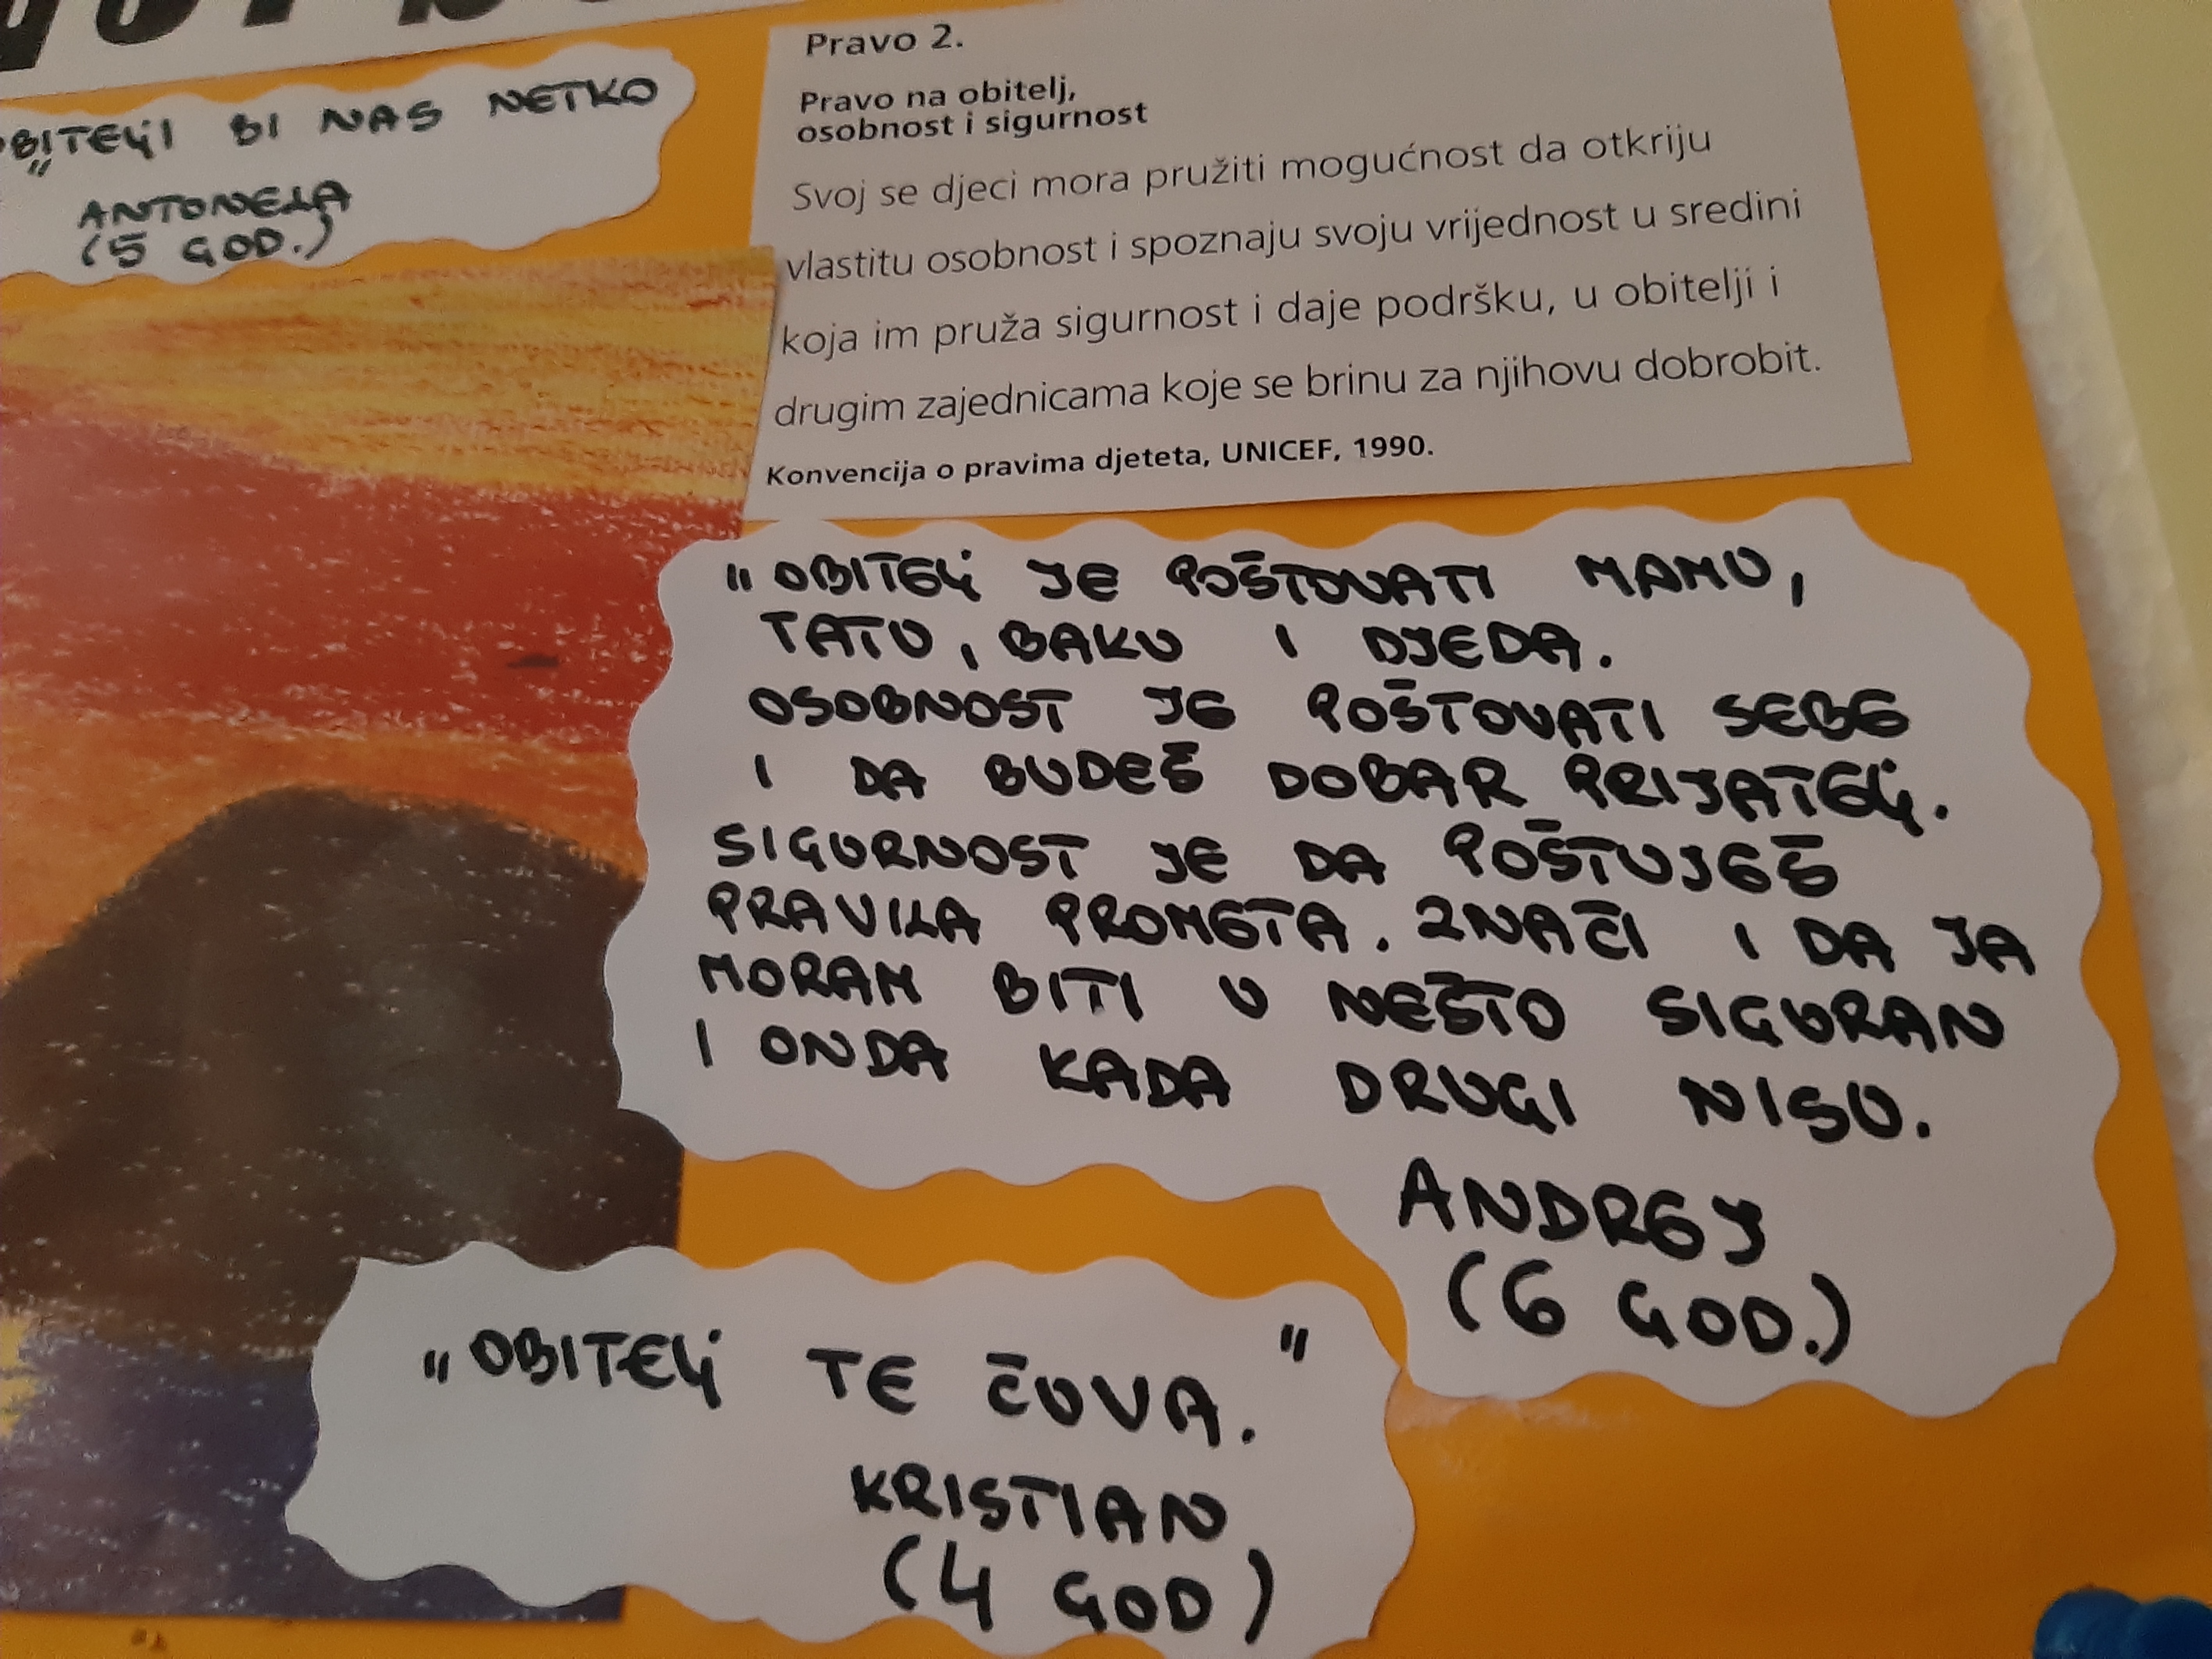 BITELJI BI NAS NETKO
"
ANTONELA
(5 GOD.)
Pravo 2.
Pravo na obitelj,
osobnost i sigurnost
Svoj se djeci mora pružiti mogućnost da otkriju
vlastitu osobnost i spoznaju svoju vrijednost u sredini
koja im pruža sigurnost i daje podršku, u obitelji i
drugim zajednicama koje se brinu za njihovu dobrobit.
Konvencija o pravima djeteta, UNICEF, 1990.
"OBITELJ JE POŠTOVATI MAMU,
TATU, BAKU I DJEDA.
OSOBNOST JE POŠTOVATI SEBE
I DA BUDEŠ DOBAR PRIJATELJ.
SIGURNOST JE DA POŠTUJEŠ
PRAVILA PROMETA. ZNAČI I DA JA
MORAM BITI U NEŠTO SIGURAN
I ONDA KADA DRUGI NISU.
ANDREJ
(6 GOD.)
"OBITELJ TE ČUVA."
KRISTIAN
(4 GOD)